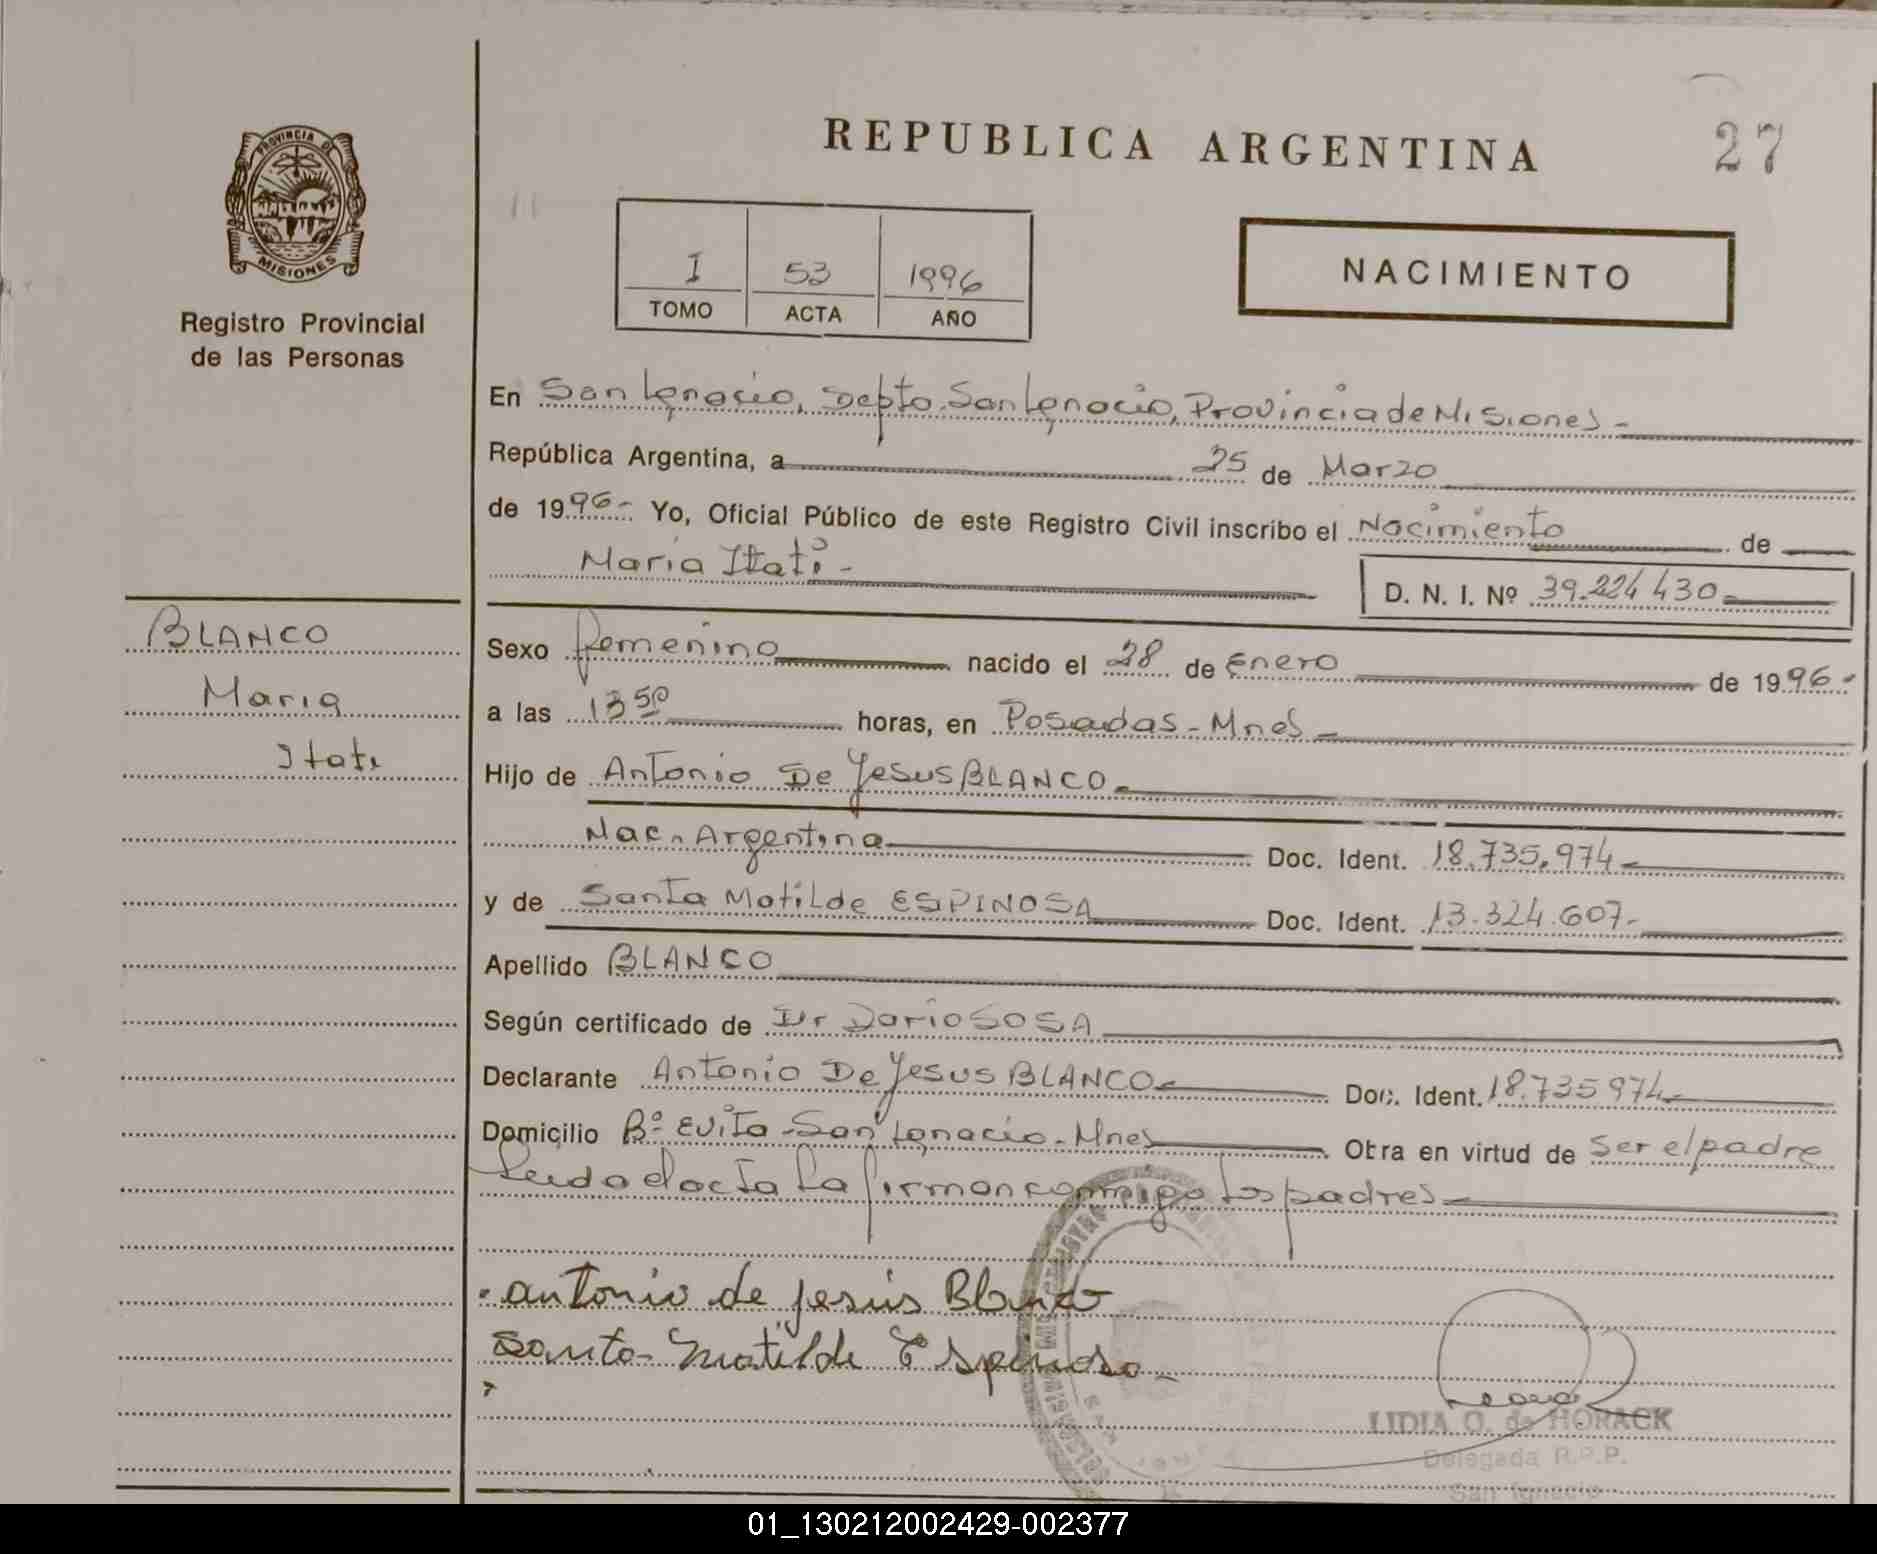 REPUBLICA ARGENTINA
27
PROVINCIA DE
MISIONES
Registro Provincial
de las Personas
I 53 1996
TOMO ACTA AÑO
NACIMIENTO
En San Ignacio, Depto. San Ignacio, Provincia de Misiones -
República Argentina, a 25 de Marzo
de 1996- Yo, Oficial Público de este Registro Civil inscribo el Nacimiento de
María Itatí -
D. N. I. Nº 39.224430
BLANCO
Maria
Itati
Sexo femenino nacido el 28 de Enero de 1996-
a las 13 50 horas, en Posadas - Mnes
Hijo de Antonio De Jesus BLANCO
Nac. Argentina Doc. Ident. 18.735.974
y de Santa Matilde ESPINOSA Doc. Ident. 13.324.607-
Apellido BLANCO
Según certificado de Dr Dario SOSA
Declarante Antonio De Jesus BLANCO Doc. Ident. 18.735974
Domicilio Bº Evita - San Ignacio - Mnes Obra en virtud de ser el padre
Leida el acta la firman conmigo los padres
antonio de jesús Blanco
Santa Matilde Espinosa
LIDIA O. de HORACK
Delegada R.P.P.
San Ignacio
01_130212002429-002377